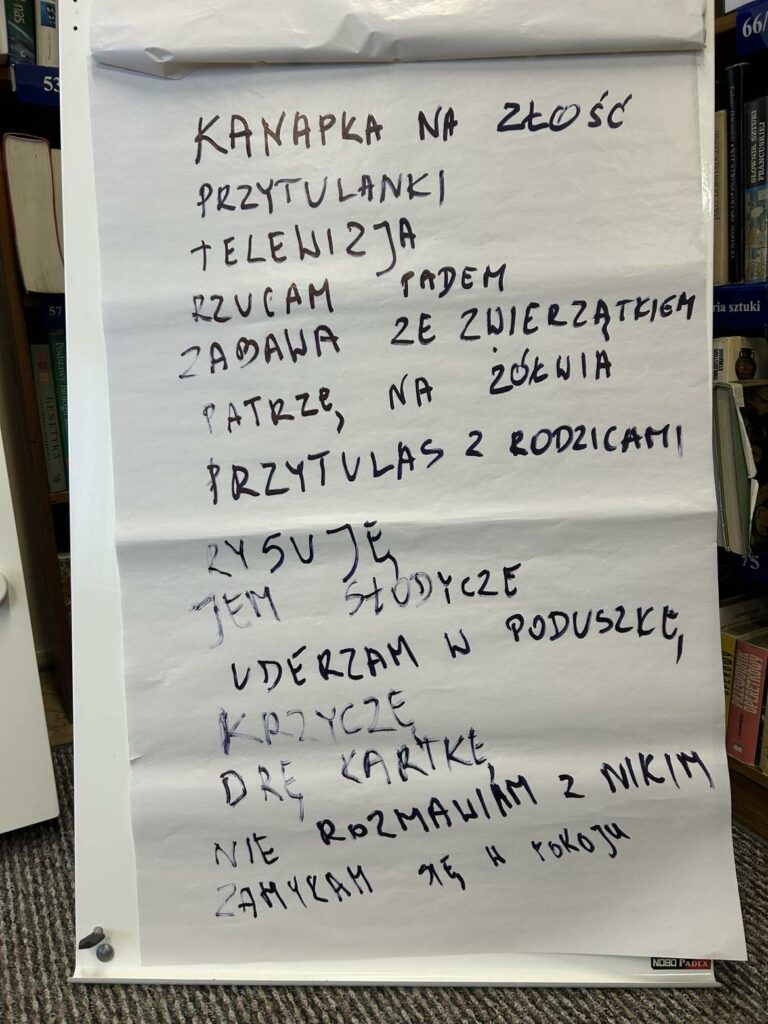 KANAPKA NA ZŁOŚĆ
PRZYTULANKI
TELEWIZJA
RZUCAM PADEM
ZABAWA ZE ZWIERZĄTKIEM
PATRZĘ NA ŻÓŁWIA
PRZYTULAS Z RODZICAMI
RYSUJĘ
JEM SŁODYCZE
UDERZAM W PODUSZKĘ
KRZYCZĘ
DRĘ KARTKĘ
NIE ROZMAWIAM Z NIKIM
ZAMYKAM SIĘ W POKOJU
NOBO PADEX
53
57
GENETYKA
66/
SŁOWNIK SZTUKI FRANCUSKIEJ
ria sztuki
75